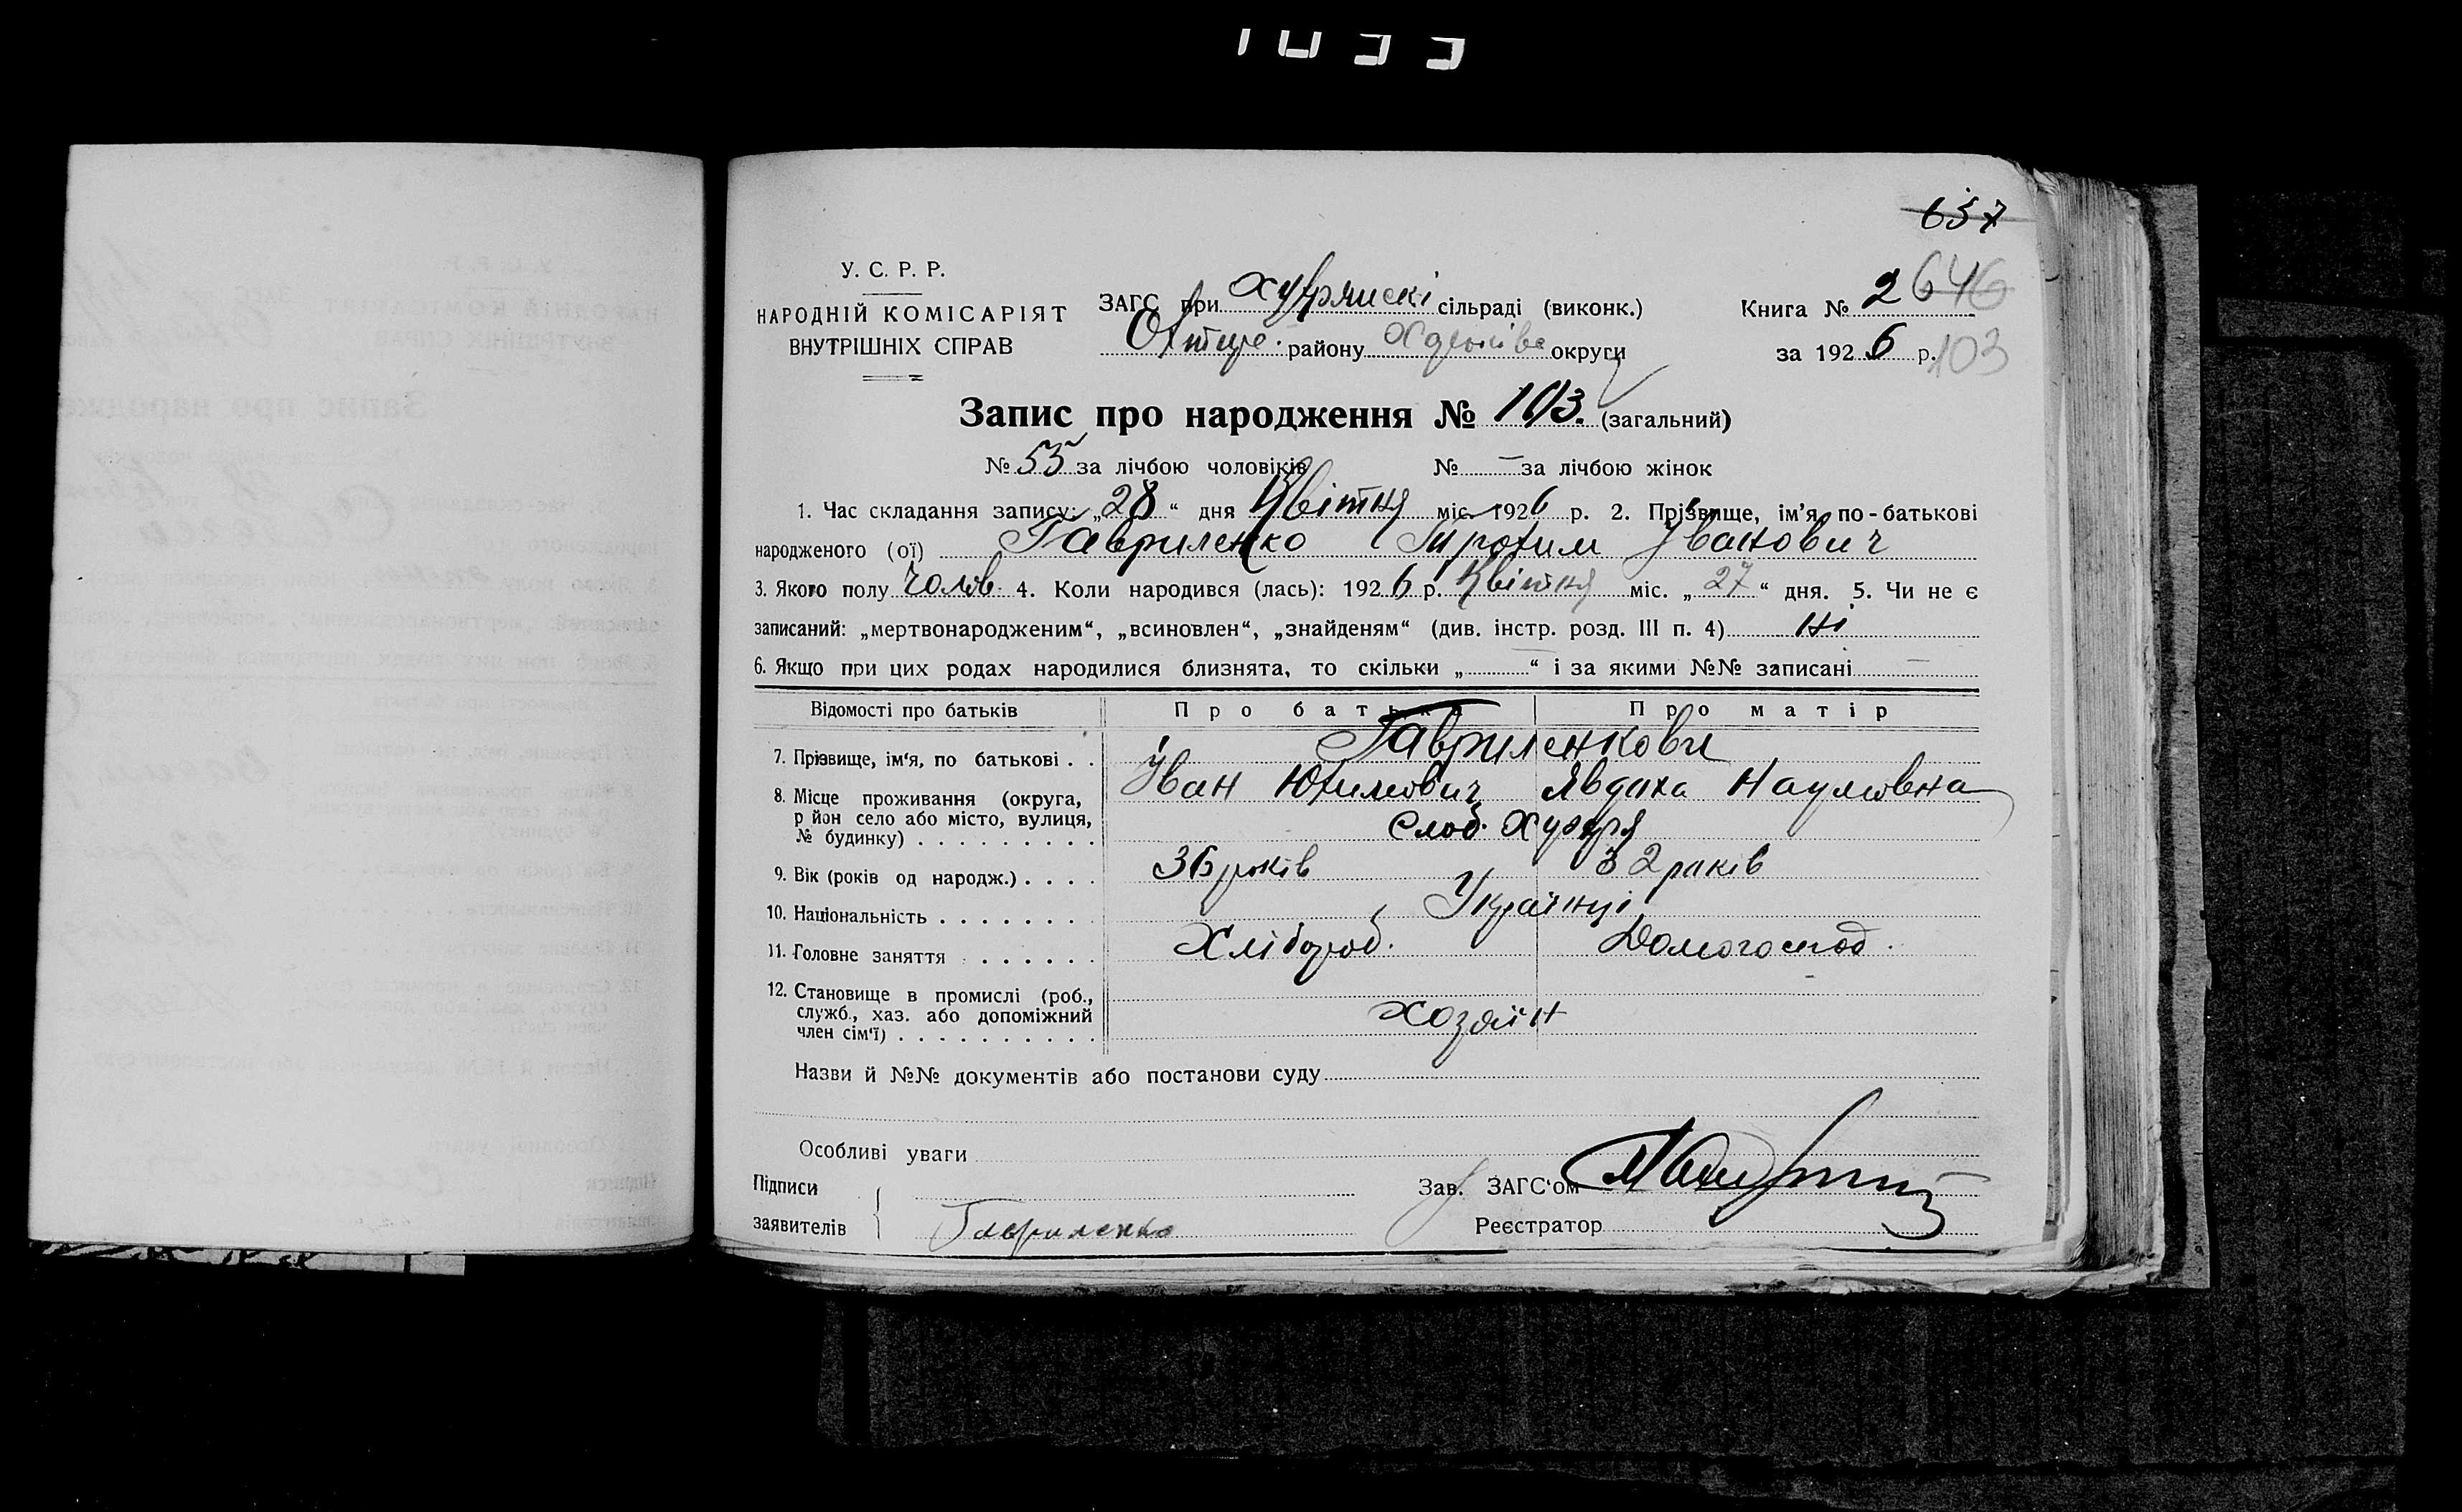 657
У. С. Р. Р.
НАРОДНІЙ КОМІСАРІЯТ
ВНУТРІШНІХ СПРАВ
ЗАГС при Хухрянскі сільраді (виконк.)
Охтир. району Харьківс округи
Книга № 2 646
за 1926 р. 103
Запис про народження № 103. (загальний)
№ 55 за лічбою чоловіків № — за лічбою жінок
1. Час складання запису: „28“ дня Квітня міс. 1926 р. 2. Прізвище, ім'я, по-батькові
народженого (ої) Гавриленко Трохим Іванович
3. Якого полу чолов. 4. Коли народився (лась): 1926 р. Квітня міс. „27“ дня. 5. Чи не є
записаний: „мертвонародженим“, „всиновлен“, „знайденям“ (див. інстр. розд. III п. 4) Ні
6. Якщо при цих родах народилися близнята, то скільки „—“ і за якими №№ записані —
Відомості про батьків Про батька Про матір
Гавриленкови
7. Прізвище, ім'я, по батькові . . Іван Юхимович Явдоха Наумовна
8. Місце проживання (округа,
р йон село або місто, вулиця,
№ будинку) . . . . . . . . . Слоб. Хухря
9. Вік (років од народж.) . . . . 36 років 32 раків
10. Національність . . . . . . . Українці
11. Головне заняття . . . . . . Хлібороб. Домогоспод.
12. Становище в промислі (роб.,
служб., хаз. або допоміжний
член сім'ї) . . . . . . . . . . Хозяїн
Назви й №№ документів або постанови суду
Особливі уваги
Підписи
заявителів Гавриленко
Зав. ЗАГС'ом
Реєстратор